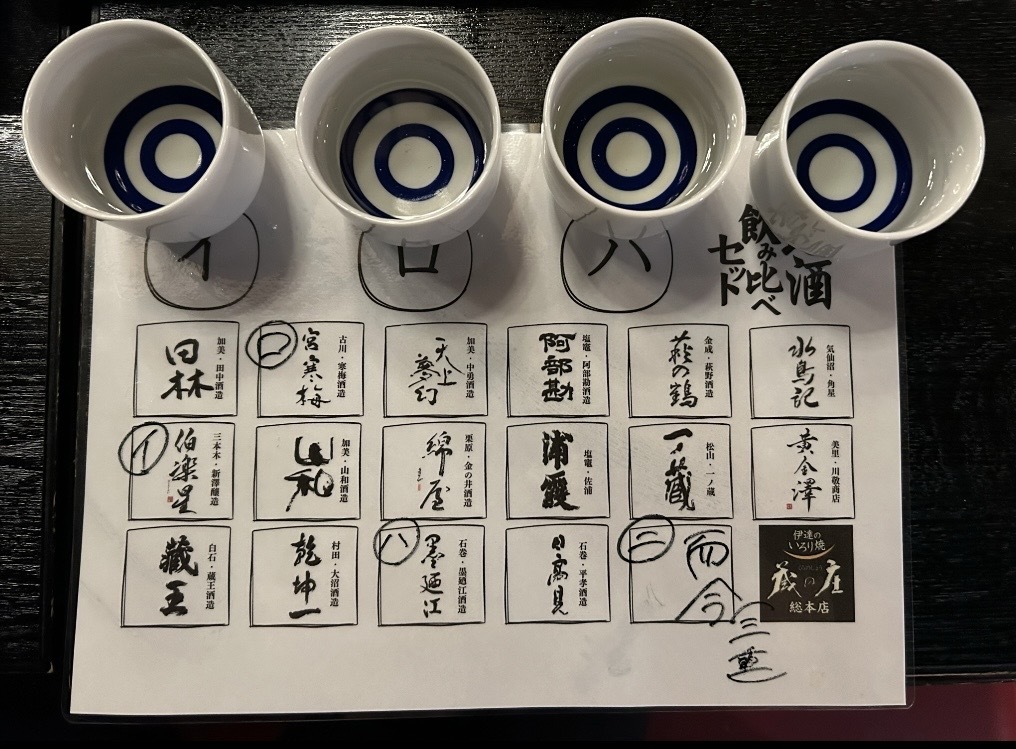 イ
ロ
ハ
酒
飲み比べ
セット
田林
加美・田中酒造
ロ
宮寒梅
古川・寒梅酒造
天上夢幻
加美・中勇酒造
阿部勘
塩竈・阿部勘酒造
萩の鶴
金成・萩野酒造
水鳥記
気仙沼・角星
イ
伯楽星
三本木・新澤醸造
山和
加美・山和酒造
綿屋
栗原・金の井酒造
浦霞
塩竈・佐浦
一ノ蔵
松山・一ノ蔵
黄金澤
美里・川敬商店
蔵王
白石・蔵王酒造
乾坤一
村田・大沼酒造
ハ
墨廼江
石巻・墨廼江酒造
日高見
石巻・平孝酒造
ニ
而今
(三重)
伊達の
いろり焼
蔵の庄
総本店